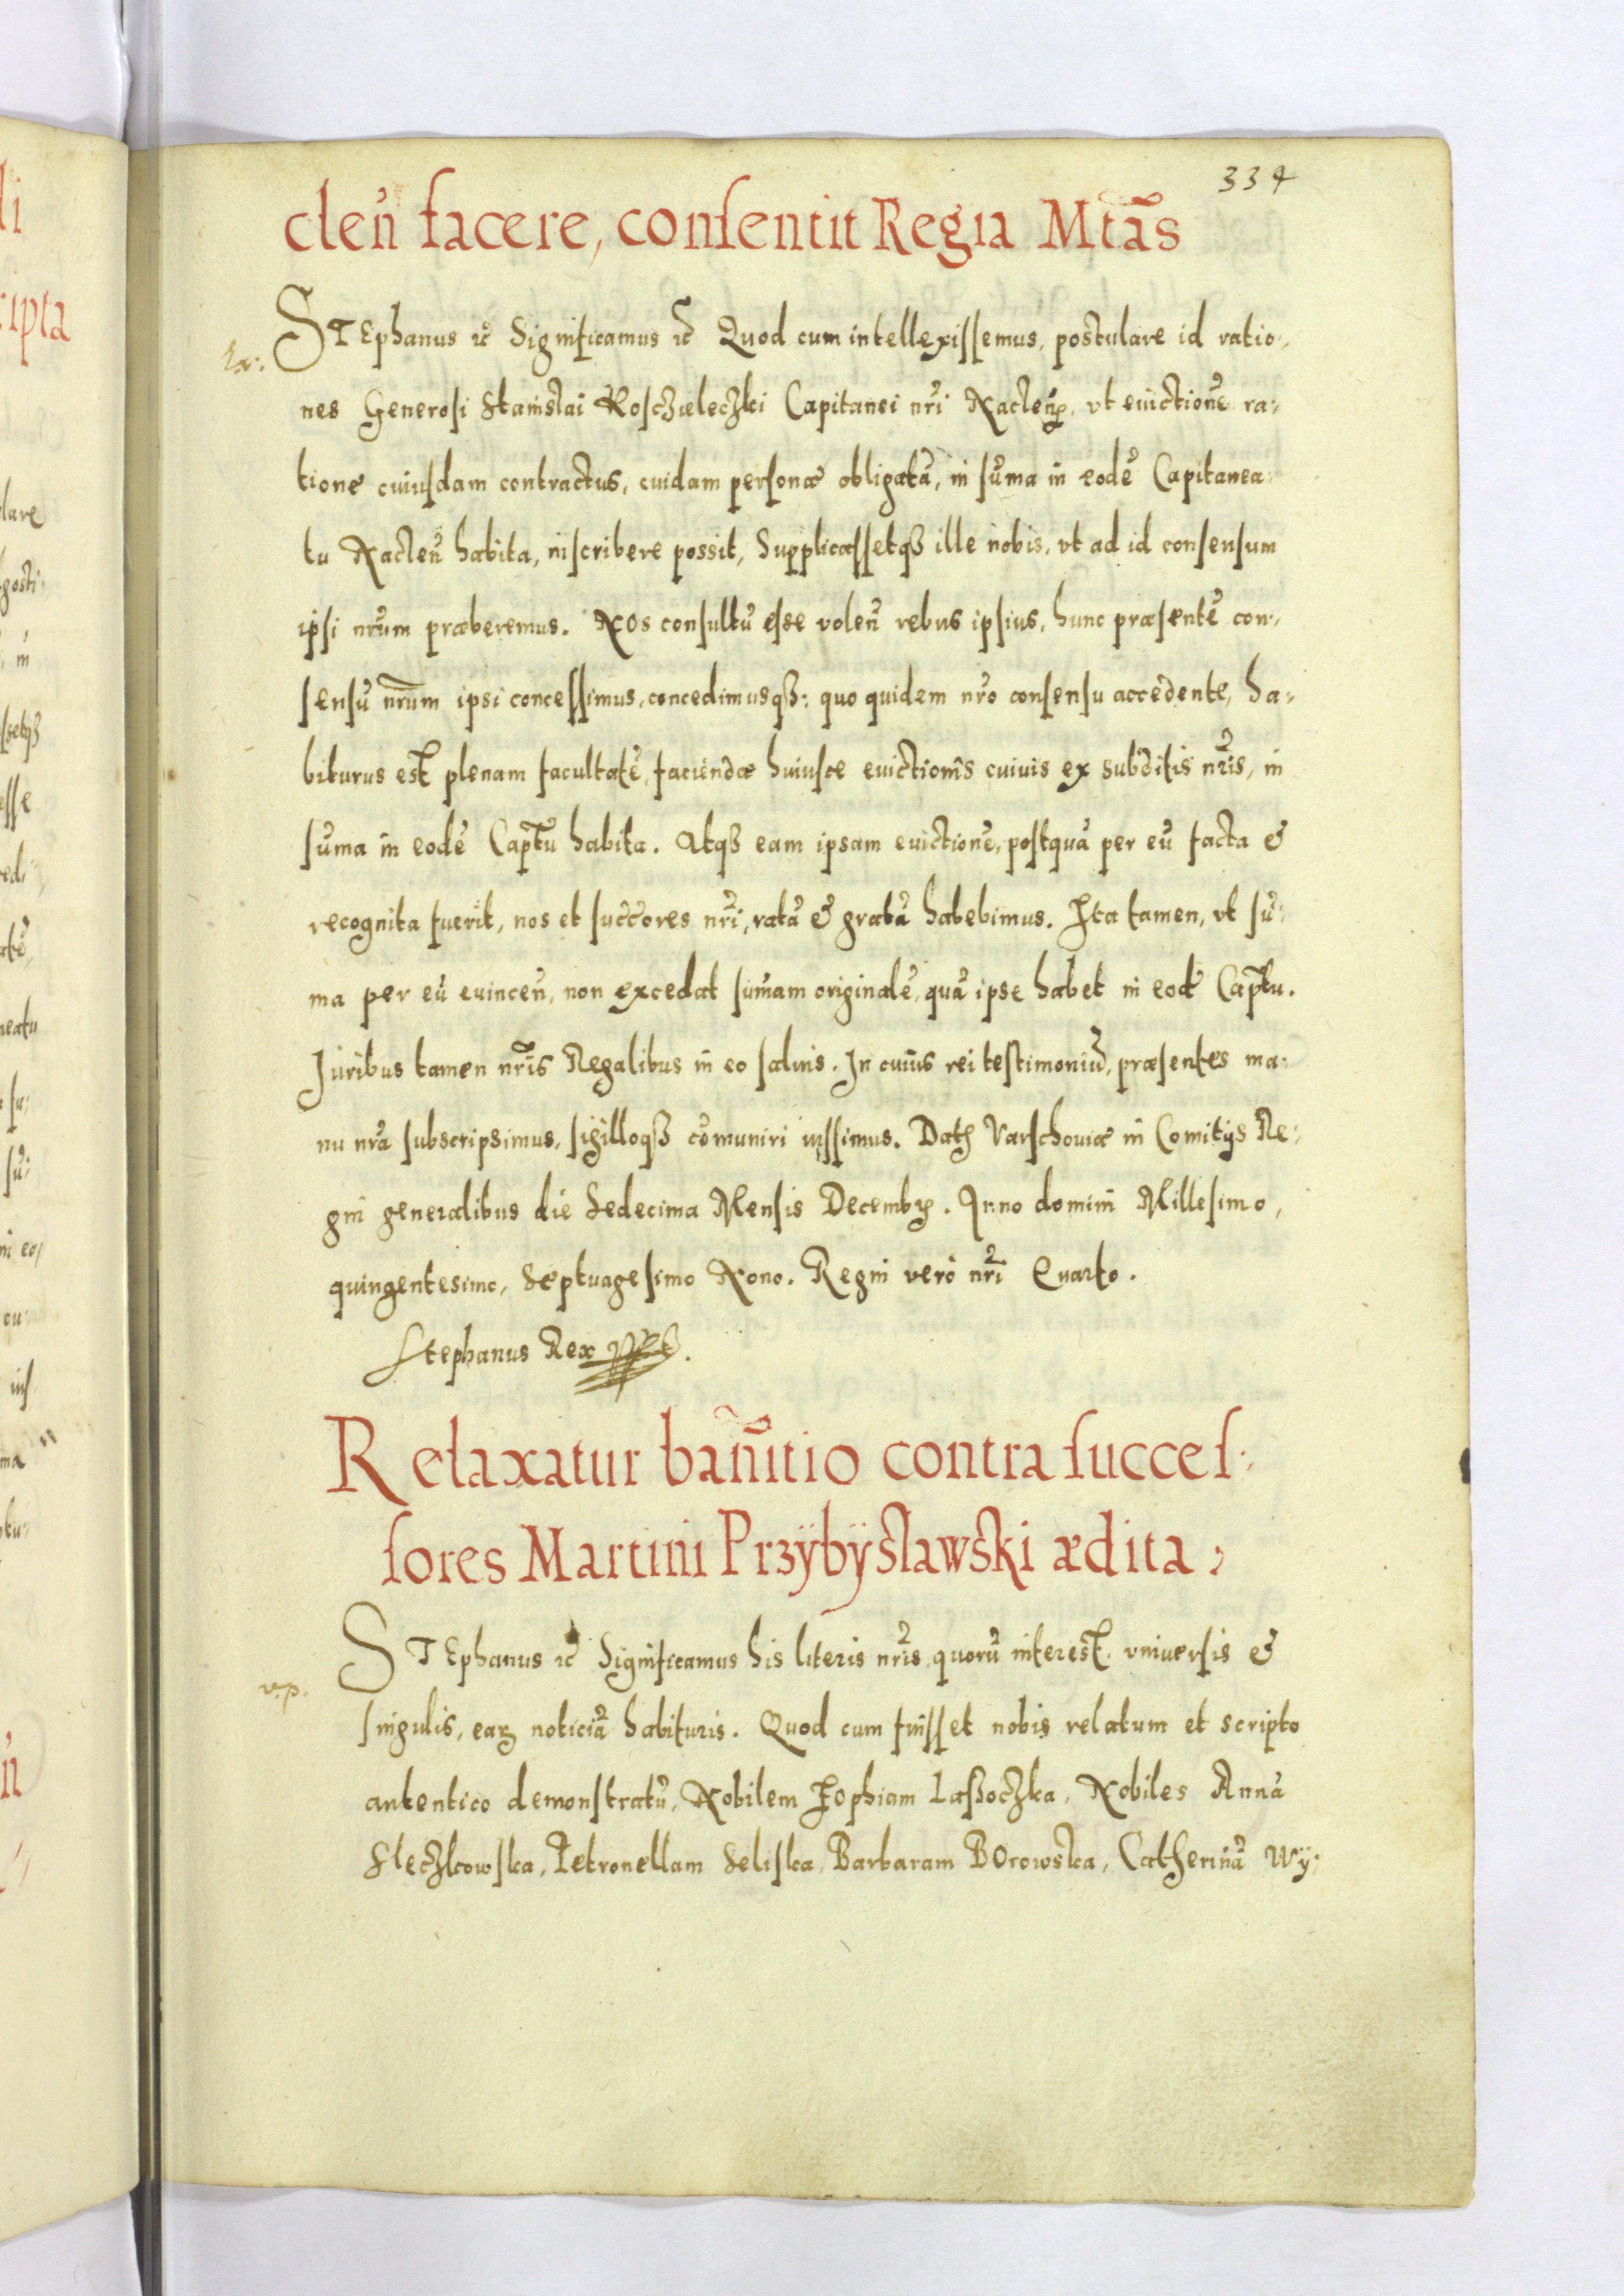 334
cleñ facere, consentit Regia Mtãs
Ex:
STEphanus etc̃ Significamus etc̃ Quod cum intellexissemus, postulare id ratio-
nes Generosi Stanislai Kosczieleczki Capitanei nr̃i Nacleñ, vt euictionẽ ra-
tione cuiusdam contractus, cuidam personæ obligatã, in sũma in eodẽ Capitanea-
tu Nacleñ habita, inscribere possit, Supplicassetqʒ ille nobis, vt ad id consensum
ipsi nr̃um præberemus. NOs consultũ esse voleñ rebus ipsius, hunc præsentẽ con-
sensũ nr̃um ipsi concessimus, concedimusqʒ: quo quidem nr̃o consensu accedente, ha-
biturus est plenam facultatẽ, faciendæ huiusce euictionis cuiuis ex subditis nr̃is, in
sũma in eodẽ Captũ habita. Atqʒ eam ipsam euictionẽ, postquã per eũ facta &
recognita fuerit, nos et succ̃ores nr̃i, ratã & gratã habebimus. Ita tamen, vt sũ-
ma per eũ euinceñ, non excedat sum̃am originalẽ, quã ipse habet in eodẽ Cap̃tu.
Iuribus tamen nr̃is Regalibus in eo saluis. In cuius rei testimoniũ, præsentes ma-
nu nr̃a subscripsimus, sigilloqʒ cõmuniri iussimus. Datȝ Varschouiæ in Comitijs Re-
gni generalibus die Sedecima Mensis Decembr̃. Anno domini Millesimo,
quingentesimo, Septuagesimo Nono. Regni vero nr̃i Quarto.
Stephanus Rex
Relaxatur bañitio contra succes-
sores Martini Przÿbÿslawski ædita:
v.p.
STEphanus etc̃ Significamus his literis nr̃is quorũ interest, vniuersis &
singulis, earȝ noticiã habituris. Quod cum fuisset nobis relatum et scripto
autentico demonstratũ, Nobilem Zophiam Laßoczka, Nobiles Annã
Sleczkowska, Petronellam Seliska, Barbaram BOrowska, Catherinã Wÿ-